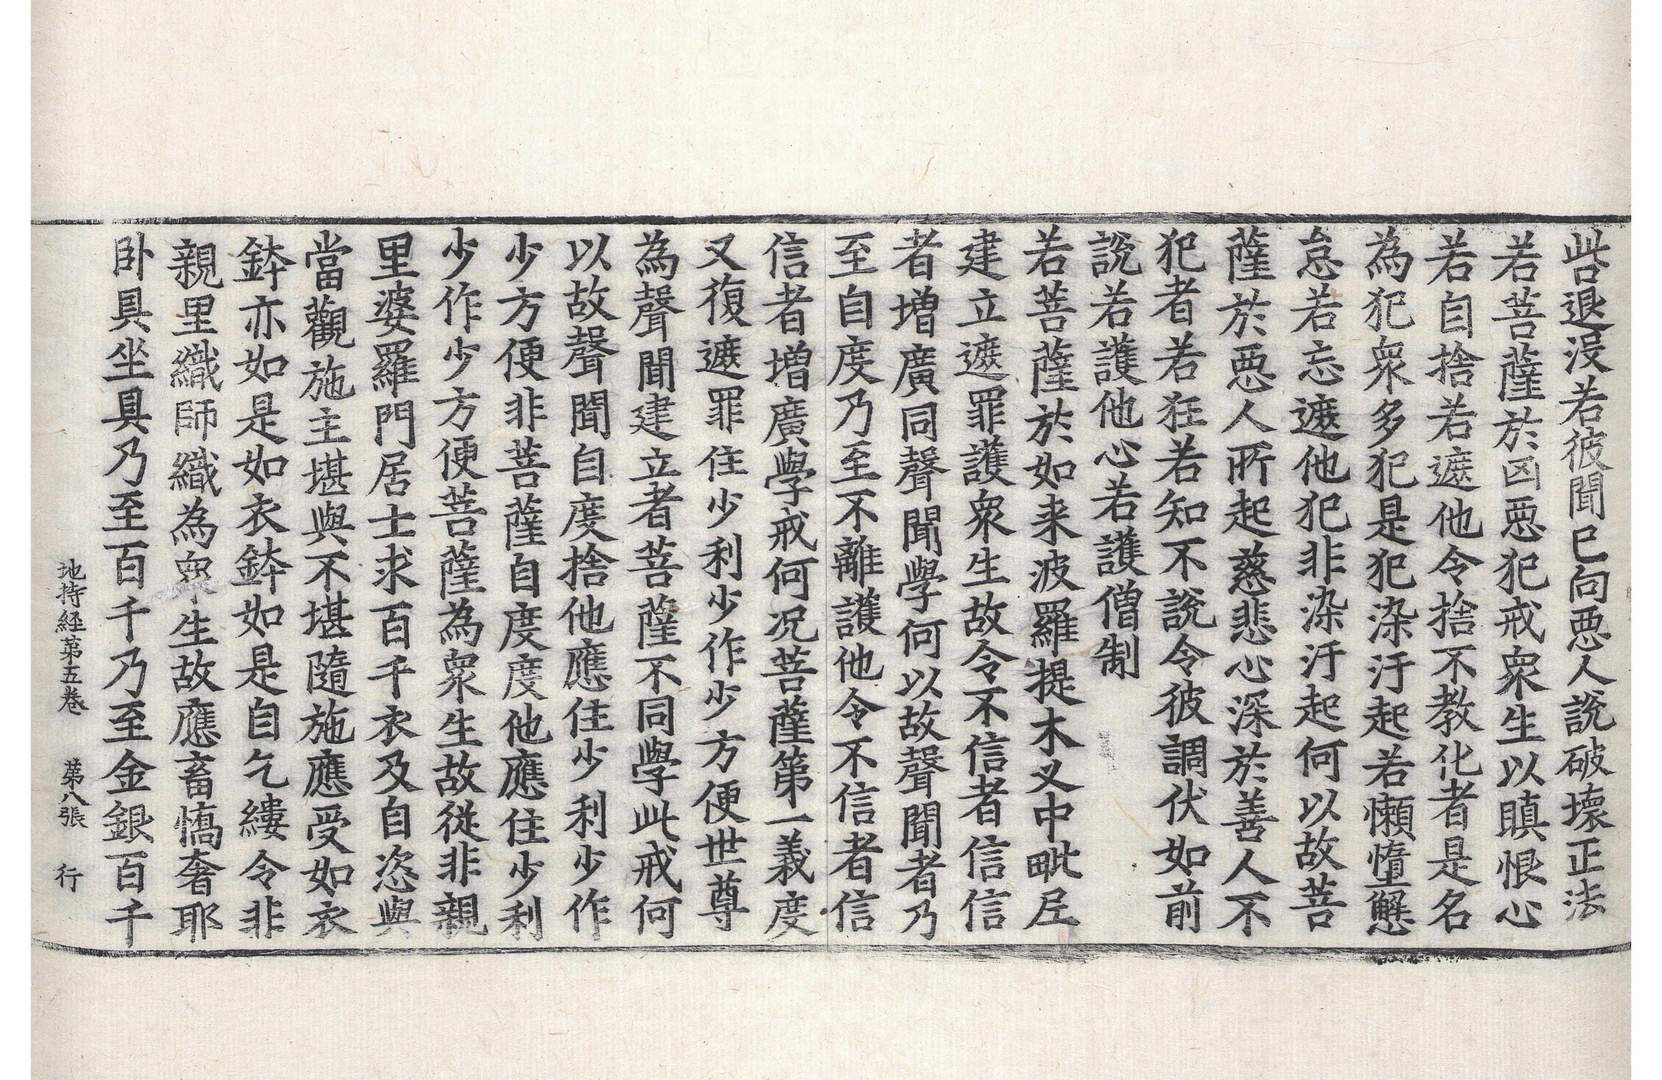 呰退没若彼聞已向惡人說破壞正法
若菩薩於凶惡犯戒衆生以瞋恨心
若自捨若遮他令捨不教化者是名
為犯衆多犯是犯染汙起若懶惰懈
怠若忘遮他犯非染汙起何以故菩
薩於惡人所起慈悲心深於善人不
犯者若狂若知不說令彼調伏如前
說若護他心若護僧制
若菩薩於如来波羅提木叉中毗尼
建立遮罪護衆生故令不信者信信
者增廣同聲聞學何以故聲聞者乃
至自度乃至不離護他令不信者信
信者增廣學戒何况菩薩第一義度
又復遮罪住少利少作少方便世尊
為聲聞建立者菩薩不同學此戒何
以故聲聞自度捨他應住少利少作
少方便非菩薩自度度他應住少利
少作少方便菩薩為衆生故從非親
里婆羅門居士求百千衣及自恣與
當觀施主堪與不堪隨施應受如衣
鉢亦如是如衣鉢如是自乞縷令非
親里織師織為衆生故應畜憍奢耶
卧具坐具乃至百千乃至金銀百千
地持經第五卷　第八張　行